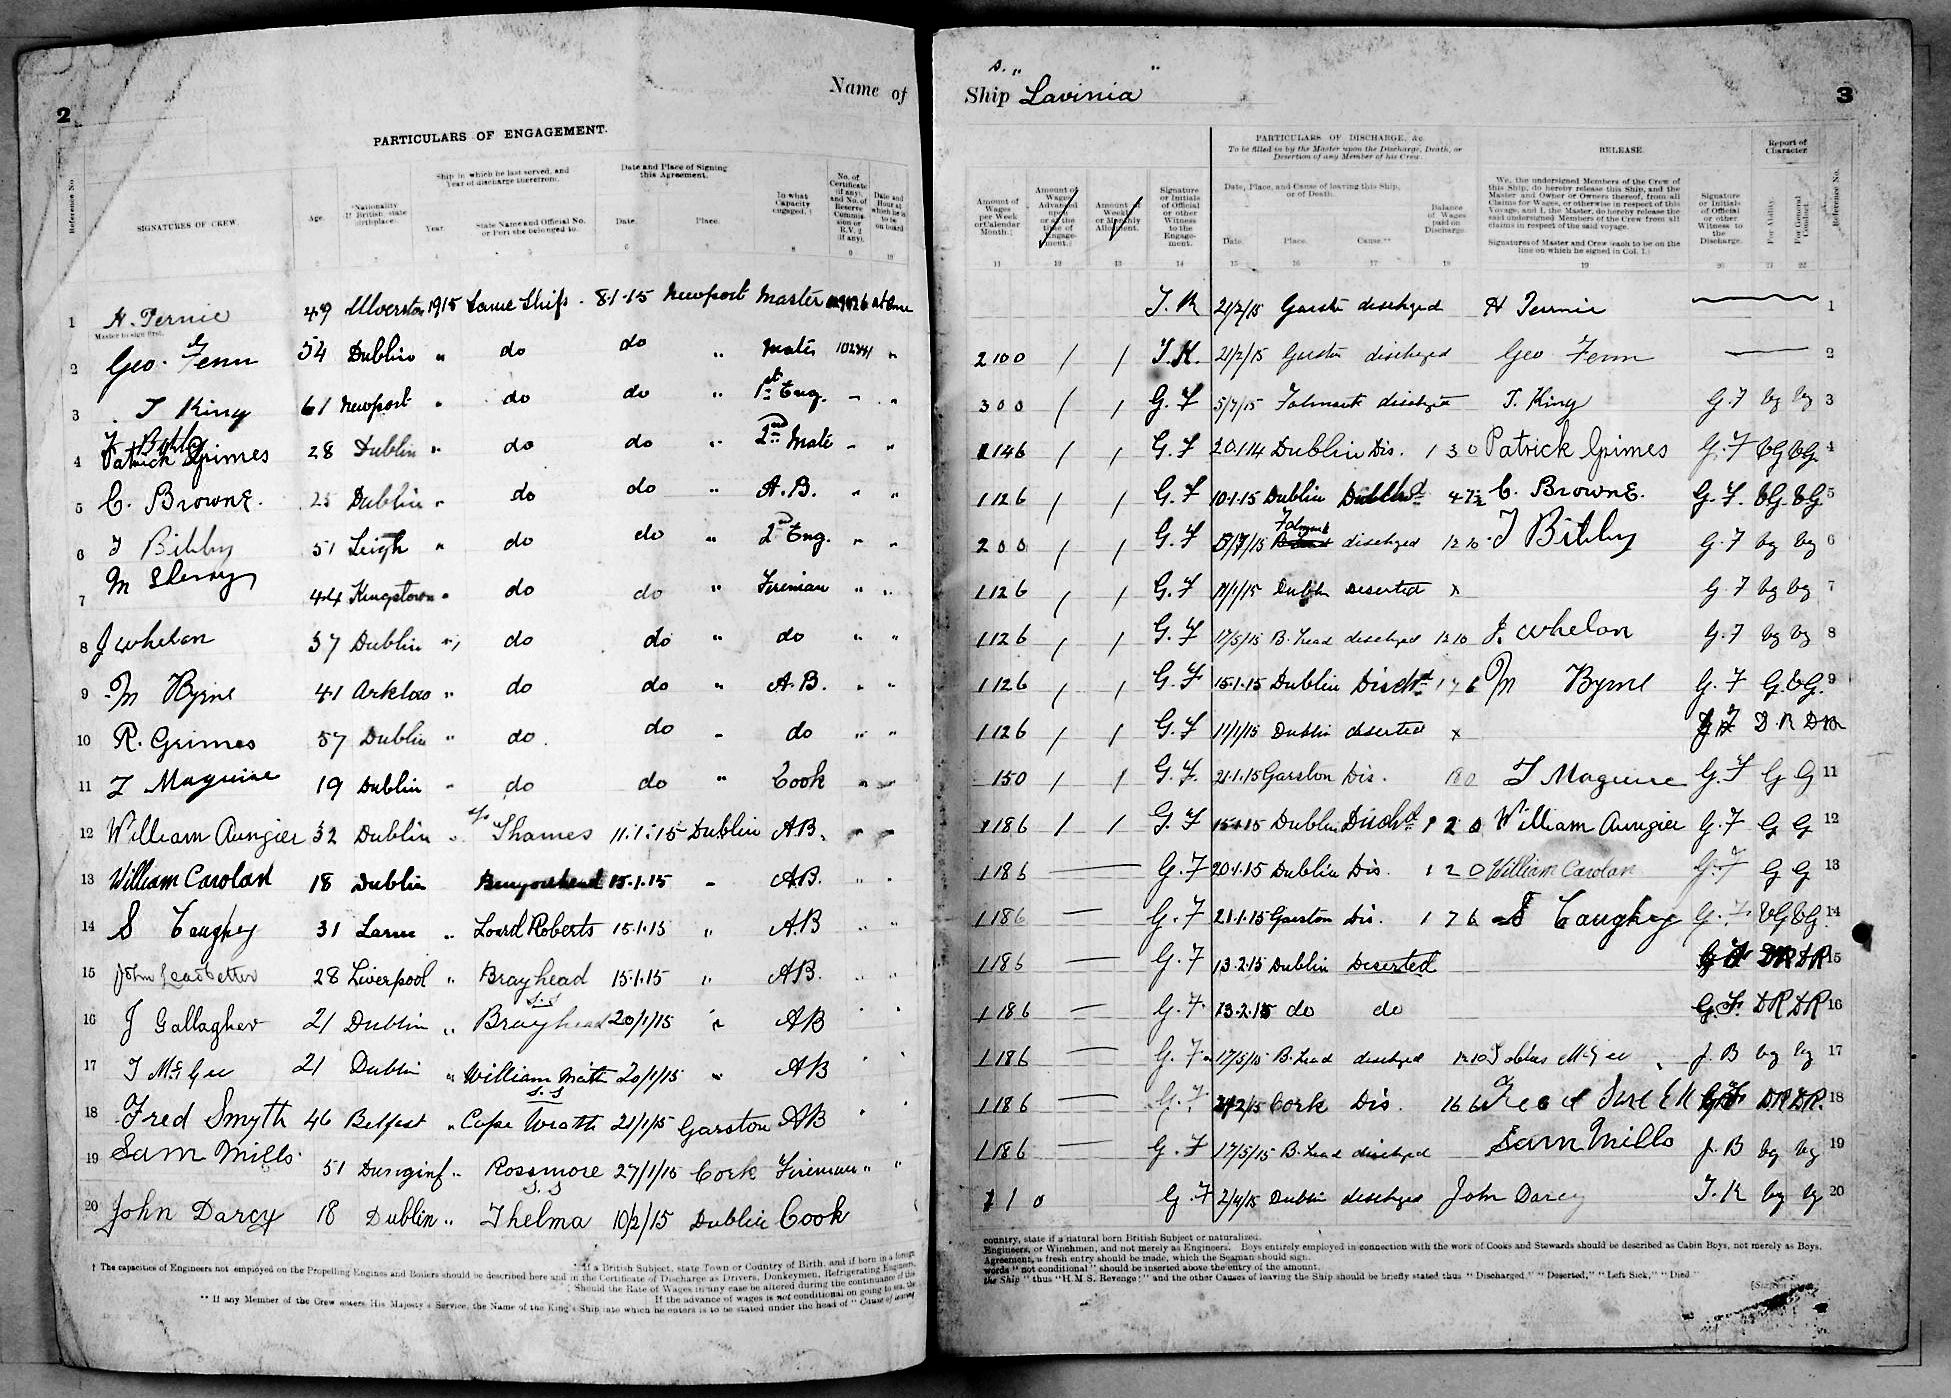 2
Name of
PARTICULARS OF ENGAGEMENT.
Reference No.
SIGNATURES OF CREW.
Age.
Nationality (If British, state birthplace).
Ship in which he last served, and Year of discharge therefrom.
Year.
State Name and Official No. or Port she belonged to.
Date and Place of Signing this Agreement.
Date.
Place.
In what Capacity engaged. †
No. of Certificate (if any), and No. of Reserve Commission or R.V. 2 (if any).
Date and Hour at which he is to be on board
1 H. Fernie 49 Ulverston 1915 Same Ship 8.1.15 Newport Master at once
Master to sign first.
2 Geo. Fenn 54 Dublin " do do " Mate "
3 T King 61 Newport " do do " 1st Eng. " "
4 Patrick Grimes 28 Dublin " do do " 2nd Mate " "
5 C. Browne. 25 Dublin " do do " A.B. " "
6 T Bibby 51 Leigh " do do " 2nd Eng. " "
7 M 44 Kingstown " do do " Fireman " "
8 J Whelan 37 Dublin " do do " do " "
9 M Byrne 41 Arklow " do do " A.B. " "
10 R. Grimes 57 Dublin " do do " do " "
11 T Maguire 19 Dublin " do do " Cook " "
12 William Aungier 32 Dublin " S/S Thames 11.1.15 Dublin AB. " "
13 William Carolan 18 Dublin 15.1.15 " AB. " "
14 S Caughey 31 Larne " Lord Roberts 15.1.15 " AB " "
15 John Leadbetter 28 Liverpool " Brayhead 15.1.15 " AB. "
16 J Gallagher 21 Dublin " S.S Brayhead 20/1/15 " AB " "
17 T McGee 21 Dublin " William 20/1/15 " AB " "
18 Fred Smyth 46 Belfast " S.S Cape Wrath 21/1/15 Garston AB " "
19 Sam Mills 51 " Rossmore 27/1/15 Cork Fireman " "
20 John Darcy 18 Dublin " S.S Thelma 10/2/15 Dublin Cook
† The capacities of Engineers not employed on the Propelling Engines and Boilers should be described here and in the Certificate of Discharge as Drivers, Donkeymen, Refrigerating Engineers,
If a British Subject, state Town or Country of Birth, and if born in a foreign
Should the Rate of Wages in any case be altered during the continuance of this
If the advance of wages is not conditional on going to sea, the
** If any Member of the Crew enters His Majesty's Service, the Name of the King's Ship into which he enters is to be stated under the head of "Cause of leaving
s. "
Ship Lavinia
3
Amount of Wages per Week or Calendar Month.
Amount of Wages Advanced upon or at the time of Engagement.
Amount of Weekly or Monthly Allotment.
Signature or Initials of Official or other Witness to the Engagement.
PARTICULARS OF DISCHARGE, &c.
To be filled in by the Master upon the Discharge, Death, or Desertion of any Member of his Crew.
Date, Place, and Cause of leaving this Ship, or of Death.
Date.
Place.
Cause.**
Balance of Wages paid on Discharge.
RELEASE.
We, the undersigned Members of the Crew of this Ship, do hereby release this Ship, and the Master and Owner or Owners thereof, from all Claims for Wages, or otherwise in respect of this Voyage, and I, the Master, do hereby release the said undersigned Members of the Crew from all claims in respect of the said voyage.
Signatures of Master and Crew (each to be on the line on which he signed in Col. 1.)
Signature or Initials of Official or other Witness to the Discharge.
Report of Character
For Ability.
For General Conduct.
Reference No.
11 12 13 14 15 16 17 18 19 20 21 22
T.K 21/2/15 discharged H Fernie 1
2 10 0 / / T.K. 21/2/15 discharged Geo Fenn 2
3 0 0 / / G.F 5/7/15 Falmouth discharged T. King G.F Vg Vg 3
1 14 6 / / G.F 20.1.14 Dublin Dis. 1 3 0 Patrick Grimes G.F VG VG 4
1 12 6 / / G.F 10.1.15 Dublin C. Browne. G.F. VG. VG 5
2 0 0 / / G.F Falmouth discharged 12 10 T Bibby G.F Vg Vg 6
1 12 6 / / G.F 11/1/15 Dublin Deserted x G.F Vg Vg 7
1 12 6 / / G.F 17/5/15 B.Head discharged 12 10 J. Whelan G.F Vg Vg 8
1 12 6 / / G.F 15.1.15 Dublin Dischd 1 7 6 M Byrne G.F G. VG. 9
1 12 6 / / G.F 11/1/15 Dublin deserted x G.F D R DR 10
1 5 0 / / G.F. 21.1.15 Garston Dis. 18 0 T Maguire G.F G G 11
1 18 6 / / G.F 15.1.15 Dublin Dischd 1 2 0 William Aungier G.F G G 12
1 18 6 G.F 20.1.15 Dublin Dis. 1 2 0 William Carolan G.F G G 13
1 18 6 G.F 21.1.15 Garston Dis. 1 7 6 S Caughey G.F. VG VG 14
1 18 6 G.F 13.2.15 Dublin Deserted G F DR DR 15
1 18 6 G.F. 13.2.15 do do G.F. DR DR 16
1 18 6 G.F 17/5/15 B.Head discharged 12 10 Tobias McGee J.B Vg Vg 17
1 18 6 G.F Cork Dis. 16 6 G.F DR DR. 18
1 18 6 G F 17/5/15 B.Head discharged Sam Mills J.B Vg Vg 19
1 1 0 G.F 2/4/15 Dublin discharged John Darcy T.K Vg Vg 20
country, state if a natural born British Subject or naturalized.
Engineers, or Winchmen, and not merely as Engineers. Boys entirely employed in connection with the work of Cooks and Stewards should be described as Cabin Boys, not merely as Boys.
Agreement, a fresh entry should be made, which the Seaman should sign.
words "not conditional" should be inserted above the entry of the amount.
the Ship" thus "H.M.S. Revenge;" and the other Causes of leaving the Ship should be briefly stated thus "Discharged," "Deserted," "Left Sick," "Died